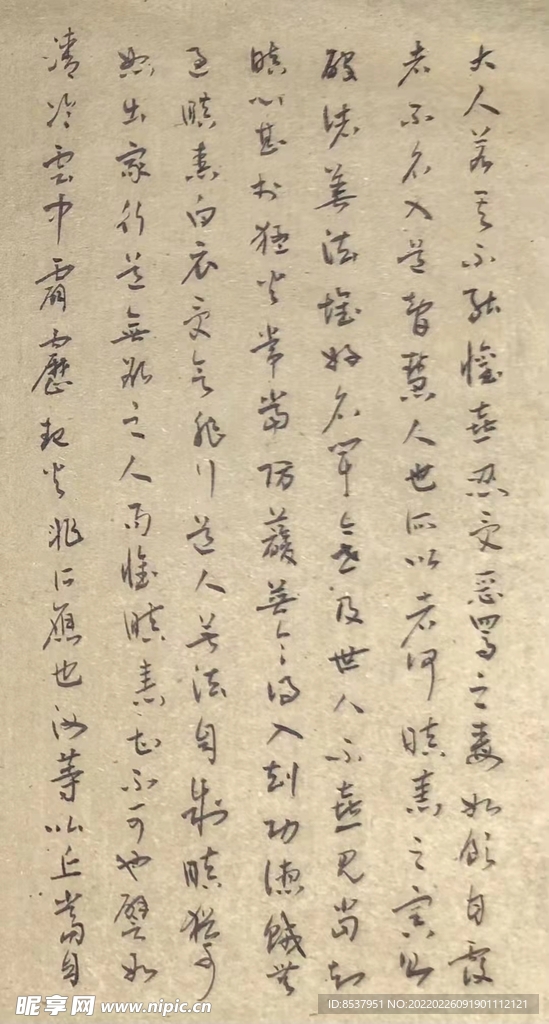 大人若其不能懽喜忍受惡罵之毒如飲甘露
者不名入道智慧人也所以者何瞋恚之害則
破諸善法壞好名聞今世後世人不喜見當知
瞋心甚於猛火常當防護無令得入劫功德賊無
過瞋恚白衣受欲非行道人無法自制瞋猶可
恕出家行道無欲之人而懷瞋恚甚不可也譬如
清冷雲中霹靂起火非所應也汝等比丘當自
昵享网 www.nipic.cn
ID:8537951 NO:20220226091901112121